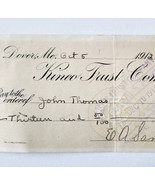 Dover, Me. Oct 5 191
Kineo Trust Com
Pay to the
order of John Thomas
Thirteen and 50/100
E A